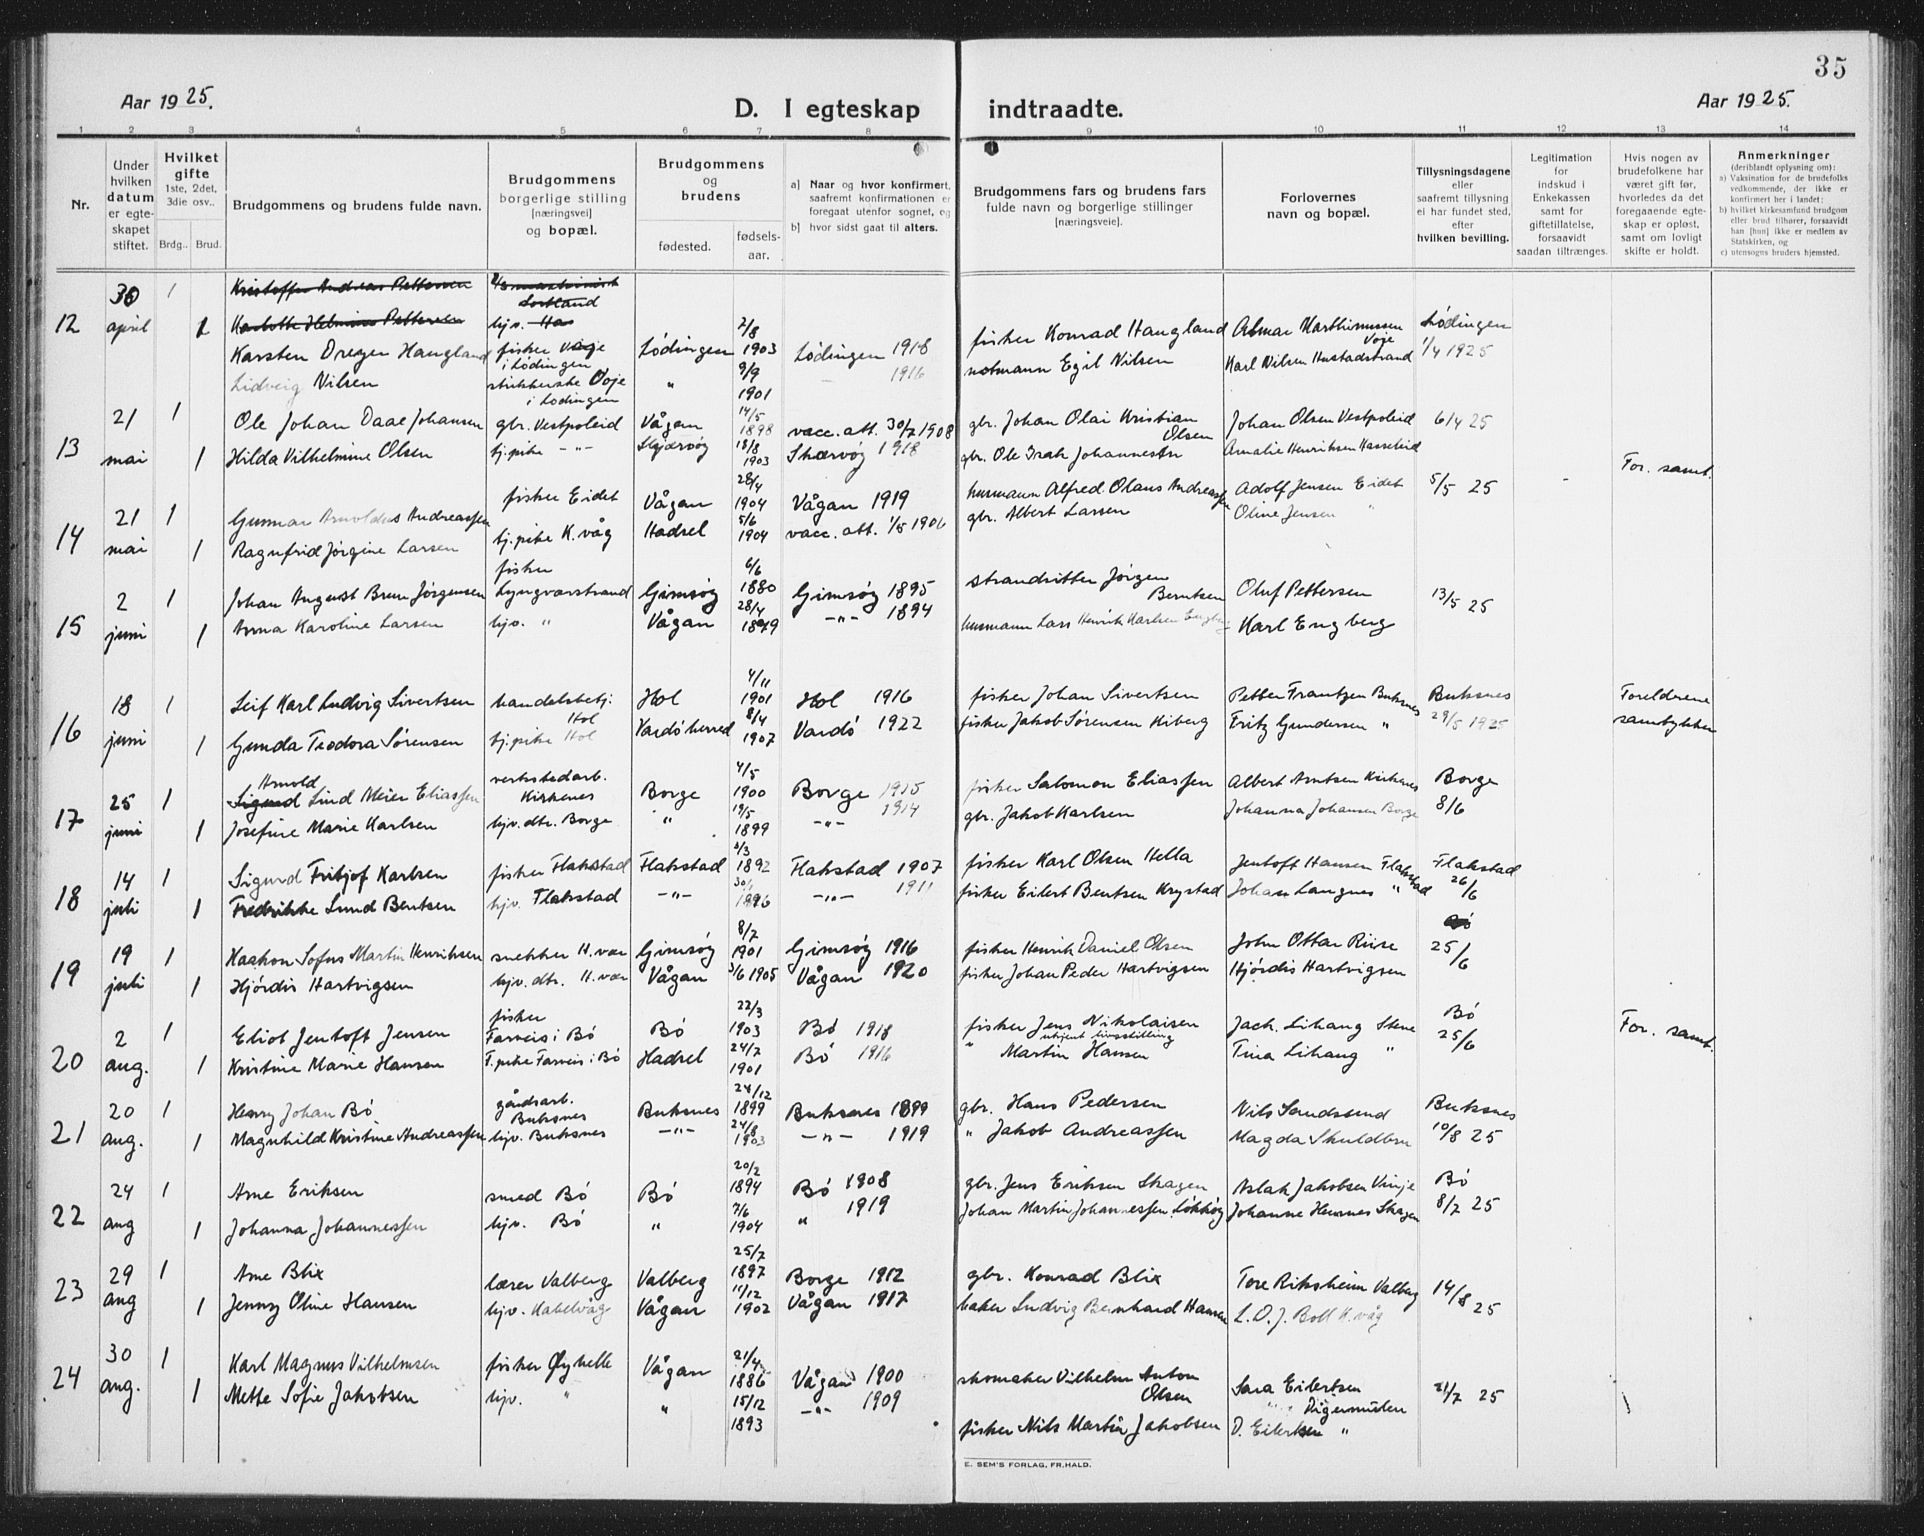 35
Aar 1925.
D. I egteskap indtraadte.
Aar 1925.
1 2 3 4 5 6 7 8 9 10 11 12 13 14
Nr.
Under hvilken datum er egteskapet stiftet.
Hvilket gifte 1ste, 2det, 3die osv..
Brdg.. Brud.
Brudgommens og brudens fulde navn.
Brudgommens borgerlige stilling [næringsvei] og bopæl.
Brudgommens og brudens
fødested. fødsels-aar.
a) Naar og hvor konfirmert, saafremt konfirmationen er foregaat utenfor sognet, og
b) hvor sidst gaat til alters.
Brudgommens fars og brudens fars fulde navn og borgerlige stillinger [næringsveie].
Forlovernes navn og bopæl.
Tillysningsdagene eller saafremt tillysning ei har fundet sted, efter hvilken bevilling.
Legitimation for indskud i Enkekassen samt for giftetillatelse, forsaavidt saadan tiltrænges.
Hvis nogen av brudefolkene har været gift før, hvorledes da det foregaaende egteskap er opløst, samt om lovligt skifte er holdt.
Anmerkninger (deriblandt oplysning om):
a) Vaksination for de brudefolks vedkommende, der ikke er konfirmert her i landet;
b) hvilket kirkesamfund brudgom eller brud tilhører, forsaavidt han [hun] ikke er medlem av Statskirken, og
c) utensogns bruders hjemsted.
12 30 april 1 Kristoffer Andreas Pettersen Sortland
1 hjv.
Karsten Dreyer Haugland fisker Voje i Lødingen Lødingen 2/8 1903 Lødingen 1918 fisker Konrad Haugland Almar Marthinussen Voje Lødingen 1/4 1925
Lidveig Nilsen Voje i Lødingen " 9/9 1901 1916 notmann Egil Nilsen Karl Nilsen Hustadstrand
13 21 mai 1 Ole Johan Daae Johansen gbr. Vestpoleid Vågan 14/5 1898 vacc. att. 30/7 1908 gbr. Johan Olai Kristian Olsen Johan Olsen Vestpoleid 6/4 25
1 Hilda Vilhelmine Olsen tj.pike -"- Skjærvøy 18/8 1903 Skærvøy 1918 gbr. Ole Isak Johannesen Amalie Henriksen
For. samt.
14 21 mai 1 Gunnar Arnoldus Andreassen fisker Eidet Vågan 28/4 1904 Vågan 1919 husmann Alfred Olaus Andreassen Adolf Jensen Eidet 5/5 25
1 Ragnfrid Jørgine Larsen tj.pike K.våg Hadsel 5/6 1904 vacc. att. 1/5 1906 gbr. Albert Larsen Oline Jensen "
15 2 juni 1 Johan August Brun Jørgensen fisker Lyngværstrand Gimsøy 6/6 1880 Gimsøy 1895 strandsitter Jørgen Berntsen Oluf Pettersen 13/5 25
1 Anna Karoline Larsen hjv. " Vågan 28/4 1879 -"- 1894 husmann Lars Henrik Karlsen Engberg Karl Engberg
16 18 juni 1 Leif Karl Ludvig Sivertsen handelsbetj. Hol Hol 4/11 1901 Hol 1916 fisker Johan Sivertsen Petter Frantzen Buksnes Buksnes 29/5 1925 Foreldrene samtykker
1 Gunda Teodora Sørensen tj.pike Hol Vardö herred 8/4 1907 Vardö 1922 fisker Jakob Sørensen Kiberg Fritz Gundersen "
17 25 juni 1 Arnold Sigurd Lind Meier Eliassen verkstedarb. Kirkenes Borge 4/5 1900 Borge 1915 fisker Salomon Eliassen Albert Arntsen Kirkenes Borge 8/6
1 Josefine Marie Karlsen hjv. dtr. Borge " 19/5 1899 -"- 1914 gbr. Jakob Karlsen Johanna Johansen Borge
18 14 juli 1 Sigurd Fritjof Karlsen fisker Flakstad Flakstad 2/3 1892 Flakstad 1907 fisker Karl Olsen Hella Jentoft Hansen Flakstad Flakstad 26/6
1 Fredrikke Lund Bentsen hjv. Flakstad -"- 1896 -"- 1911 fisker Eilert Bentsen Krystad Johan Langnes "
19 19 juli 1 Haakon Sofus Martin Henriksen snekker H.vær Gimsøy 8/7 1901 Gimsøy 1916 fisker Henrik Daniel Olsen John Ottar Riise Bö 25/6
1 Hjørdis Hartvigsen hjv. dtr. H.vær Vågan 3/6 1905 Vågan 1920 fisker Johan Peder Hartvigsen Hjördis Hartvigsen
20 2 aug. 1 Eliot Jentoft Jensen fisker Farveis i Bö Bö 22/3 1903 Bö 1918 fisker Jens Nikolaisen Jach. Lihaug Stene Bö 25/6 For. samt.
1 Kristine Marie Hansen T.pike Farveis i Bö Hadsel 24/7 1901 Bö 1916 " ukjent livsstilling Martin Hansen Tina Lihaug "
21 20 aug. 1 Henry Johan Bö gårdsarb. Buksnes Buksnes 24/12 1899 Buksnes 1899 gbr. Hans Pedersen Nils Sandsund Buksnes 10/8 25
1 Magnhild Kristine Andreassen hjv. Buksnes -"- 24/8 1903 -"- 1919 " Jakob Andreassen Magda Skuldbrn
22 24 aug 1 Arne Eriksen smed Bö Bö 20/2 1894 Bö 1908 gbr. Jens Eriksen Skagen Aslak Jakobsen Vinje Bö 8/7 25
1 Johanna Johannessen hjv. Bö " 7/6 1904 " 1919 Johan Martin Johannessen Løkhøy Johanne Hennes Skagen
23 29 aug 1 Arne Blix lærer Valberg Valberg 25/7 1897 Borge 1912 gbr. Konrad Blix Tore Riksheim Valberg 14/8 25
1 Jenny Oline Hansen hjv. Kabelvåg Vågan 17/12 1902 Vågan 1917 baker Ludvig Bernhard Hansen L. O. J. Boll K.våg
24 30 aug. 1 Karl Magnus Vilhelmsen fisker Øyhelle Vågan 21/4 1886 Vågan 1900 skomaker Vilhelm Anton Olsen Sara Eilertsen Digermulen 21/7 25
1 Mette Sofie Jakobsen hjv. " " 15/12 1893 -"- 1909 fisker Nils Martin Jakobsen D. Eilertsen "
E. SEM'S FORLAG, FR.HALD.